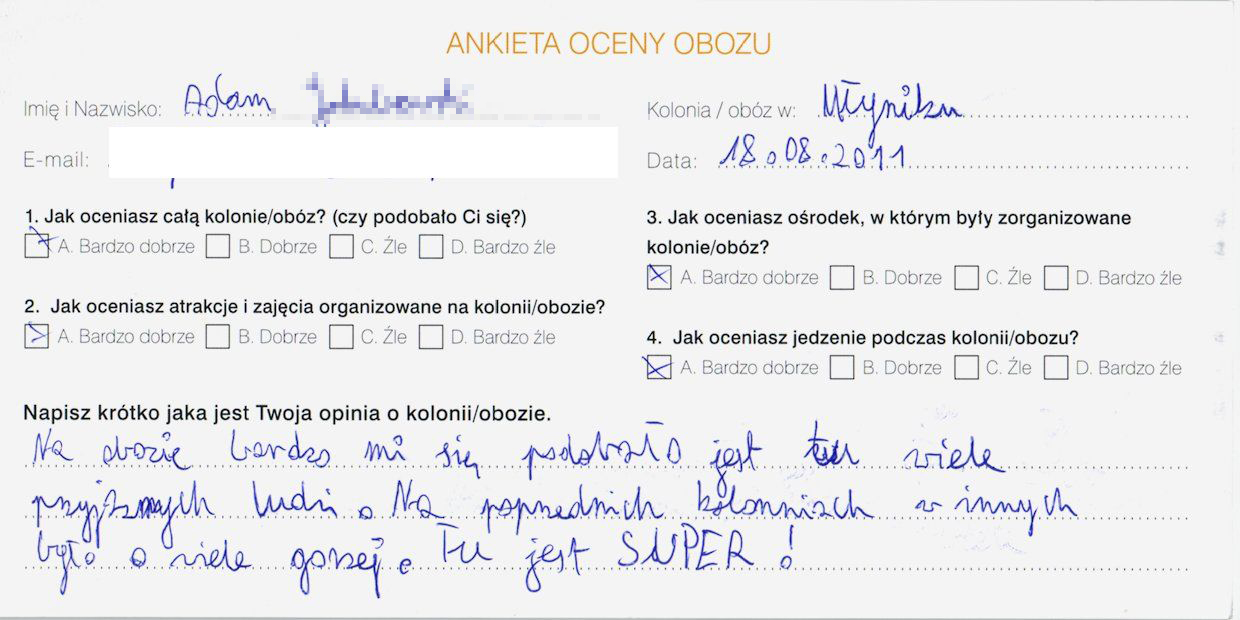 ANKIETA OCENY OBOZU
Imię i Nazwisko: Adam
Kolonia / obóz w: Młyniku
E-mail:
Data: 18.08.2011
1. Jak oceniasz całą kolonie/obóz? (czy podobało Ci się?)
A. Bardzo dobrze B. Dobrze C. Źle D. Bardzo źle
2. Jak oceniasz atrakcje i zajęcia organizowane na kolonii/obozie?
A. Bardzo dobrze B. Dobrze C. Źle D. Bardzo źle
3. Jak oceniasz ośrodek, w którym były zorganizowane
kolonie/obóz?
A. Bardzo dobrze B. Dobrze C. Źle D. Bardzo źle
4. Jak oceniasz jedzenie podczas kolonii/obozu?
A. Bardzo dobrze B. Dobrze C. Źle D. Bardzo źle
Napisz krótko jaka jest Twoja opinia o kolonii/obozie.
Na obozie bardzo mi się podobało jest tu wiele
ludzi. Na w innych
było o wiele gorzej. Tu jest SUPER!